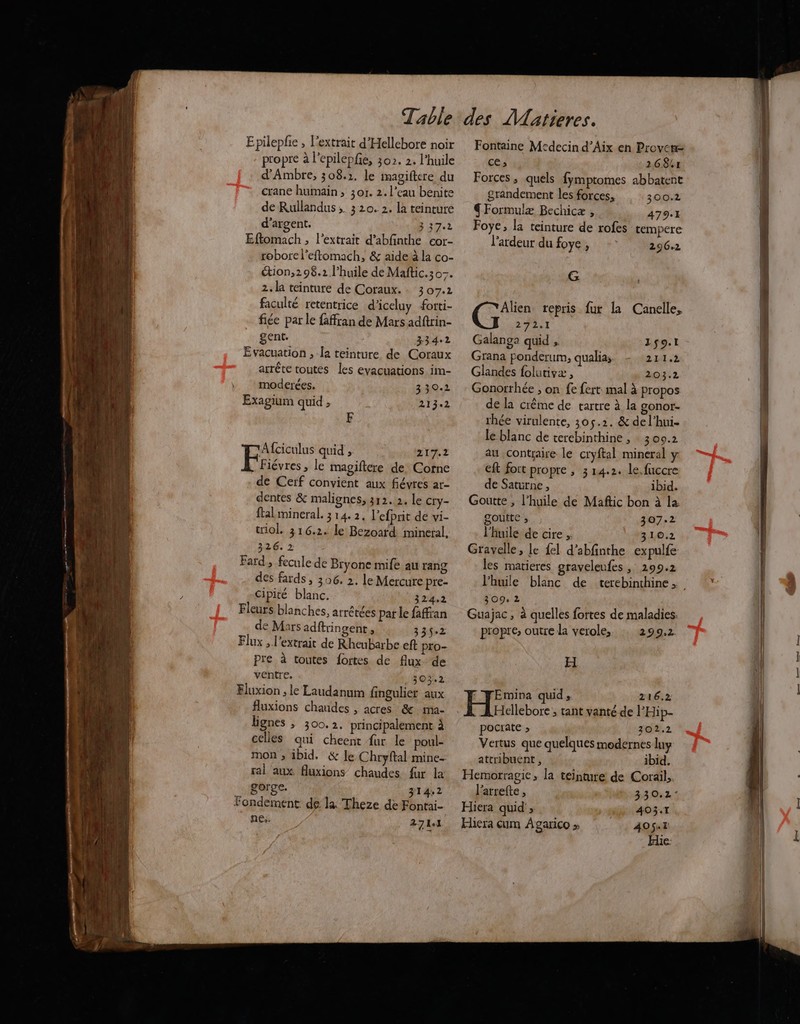 Table des Matieres.
Epilepſie, l'extrait d'Hellebore noir
propre à l'epilepſie, 302. 2. l'huile
d'Ambre, 308.2. le magiſtere du
crane humain, 301. 2. l'eau benite
de Rullandus, 320. 2. la teinture
d'argent. 337.2
Eſtomach, l'extrait d'abſinthe cor-
robore l'eſtomach, & aide à la co-
ction, 298.2 l'huile de Maſtic. 307.
2. la teinture de Coraux. 307.2
faculté retentrice d'iceluy forti-
fiée par le ſaffran de Mars adſtrin-
gent. 334.2
Evacuation, la teinture de Coraux
arrête toutes les evacuations im-
moderées. 330.2
Exagium quid, 213.2
F
FAſciculus quid, 217.2
Fiévres, le magiſtere de Corne
de Cerf convient aux fiévres ar-
dentes & malignes, 312. 2. le cry-
ſtal mineral. 314. 2. l'eſprit de vi-
triol. 316.2. le Bezoard mineral,
326. 2
Fard, fecule de Bryone miſe au rang
des fards, 306. 2. le Mercure pre-
cipité blanc. 324.2
Fleurs blanches, arrêtées par le ſaffran
de Mars adſtringent, 335.2
Flux, l'extrait de Rheubarbe eſt pro-
pre à toutes ſortes de flux de
ventre. 303.2
Fluxion, le Laudanum ſingulier aux
fluxions chaudes, acres & ma-
lignes, 300. 2. principalement à
celles qui cheent ſur le poul-
mon, ibid. & le Chryſtal mine-
ral aux fluxions chaudes ſur la
gorge. 314.2
Fondement de la Theze de Fontai-
ne. 271.1
Fontaine Medecin d'Aix en Proven-
ce, 268.1
Forces, quels ſymptomes abbatent
grandement les forces, 300.2
¶ Formulæ Bechicæ, 479.1
Foye, la teinture de roſes tempere
l'ardeur du foye, 296.2
G
GAlien repris ſur la Canelle,
272.1
Galanga quid, 159.1
Grana ponderum, qualia, 211.2
Glandes ſolutivæ, 203.2
Gonorrhée, on ſe ſert mal à propos
de la crême de tartre à la gonor-
rhée virulente, 305.2. & de l'hui-
le blanc de terebinthine, 309.2
au contraire le cryſtal mineral y
eſt fort propre, 314.2. le ſuccre
de Saturne, ibid.
Goutte, l'huile de Maſtic bon à la
goutte, 307.2
l'huile de cire, 310.2
Gravelle, le ſel d'abſinthe expulſe
les matieres graveleuſes, 299.2
l'huile blanc de terebinthine,
309. 2
Guajac, à quelles ſortes de maladies
propre, outre la verole, 299.2
H
HEmina quid, 216.2
Hellebore, tant vanté de l'Hip-
pocrate, 302.2
Vertus que quelques modernes luy
attribuent, ibid.
Hemorragie, la teinture de Corail,
l'arreſte, 330.2
Hiera quid, 403.1
Hiera cum Agarico, 405.1
Hie